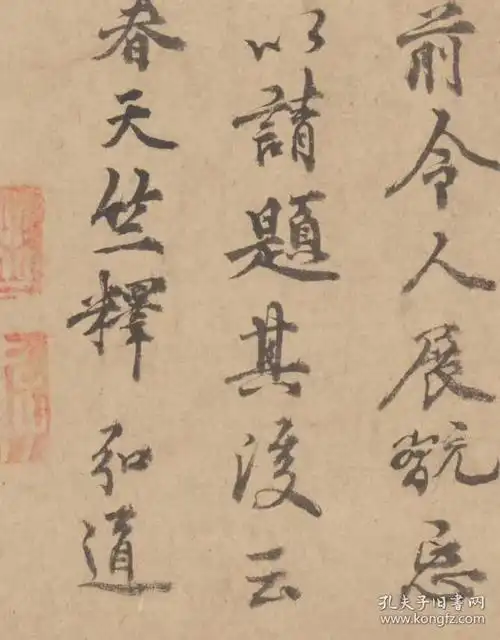 前令人展翫忘
以請題其後云
春天竺釋弘道
孔夫子旧书网
www.kongfz.com